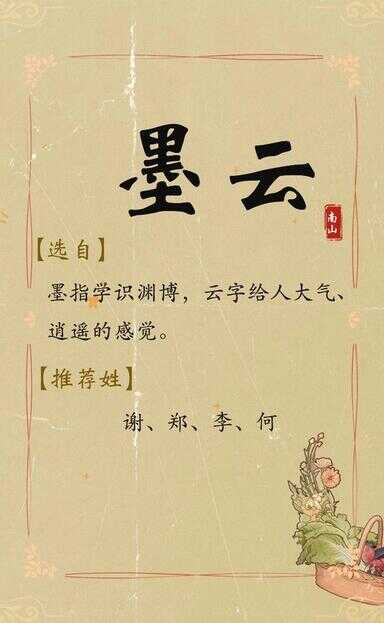 墨云
南山
【选自】
墨指学识渊博，云字给人大气、
逍遥的感觉。
【推荐姓】
谢、郑、李、何